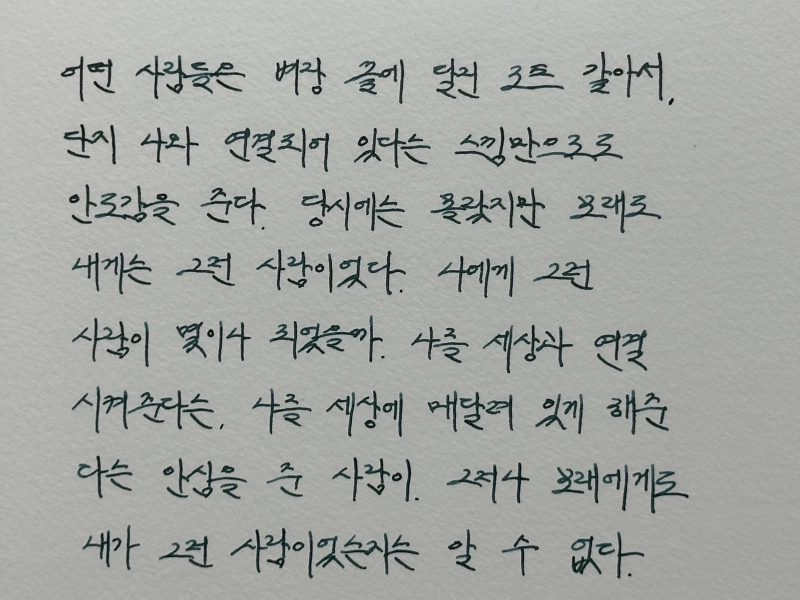 어떤 사람들은 벼랑 끝에 달린 로프 같아서,
단지 나와 연결되어 있다는 느낌만으로도
안도감을 준다. 당시에는 몰랐지만 모래도
내게는 그런 사람이었다. 나에게 그런
사람이 몇이나 되었을까. 나를 세상과 연결
시켜준다는, 나를 세상에 매달려 있게 해준
다는 안심을 준 사람이. 그러나 모래에게도
내가 그런 사람이었는지는 알 수 없다.